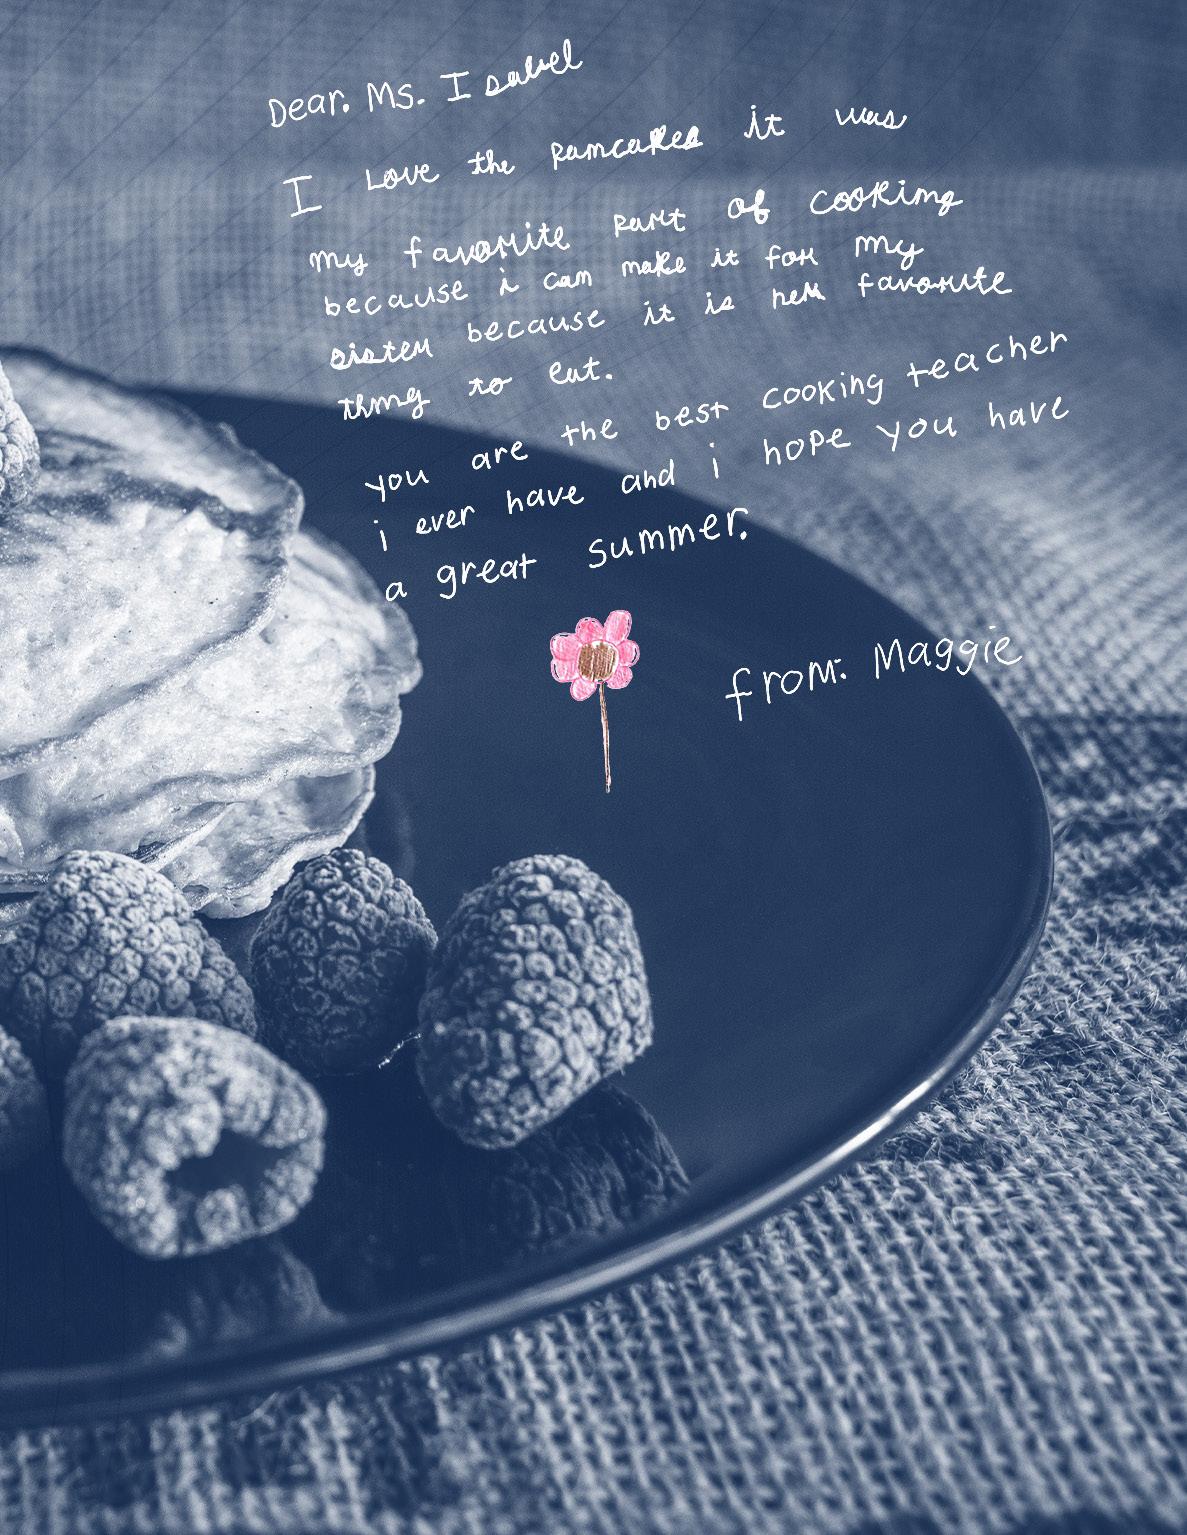 Dear. Ms. Isabel
I Love the pamcakes it was
my favorite part of cooking
because i can make it for my
sister because it is her favorite
thing to eat.
you are the best cooking teacher
i ever have and i hope you have
a great summer.
from: Maggie